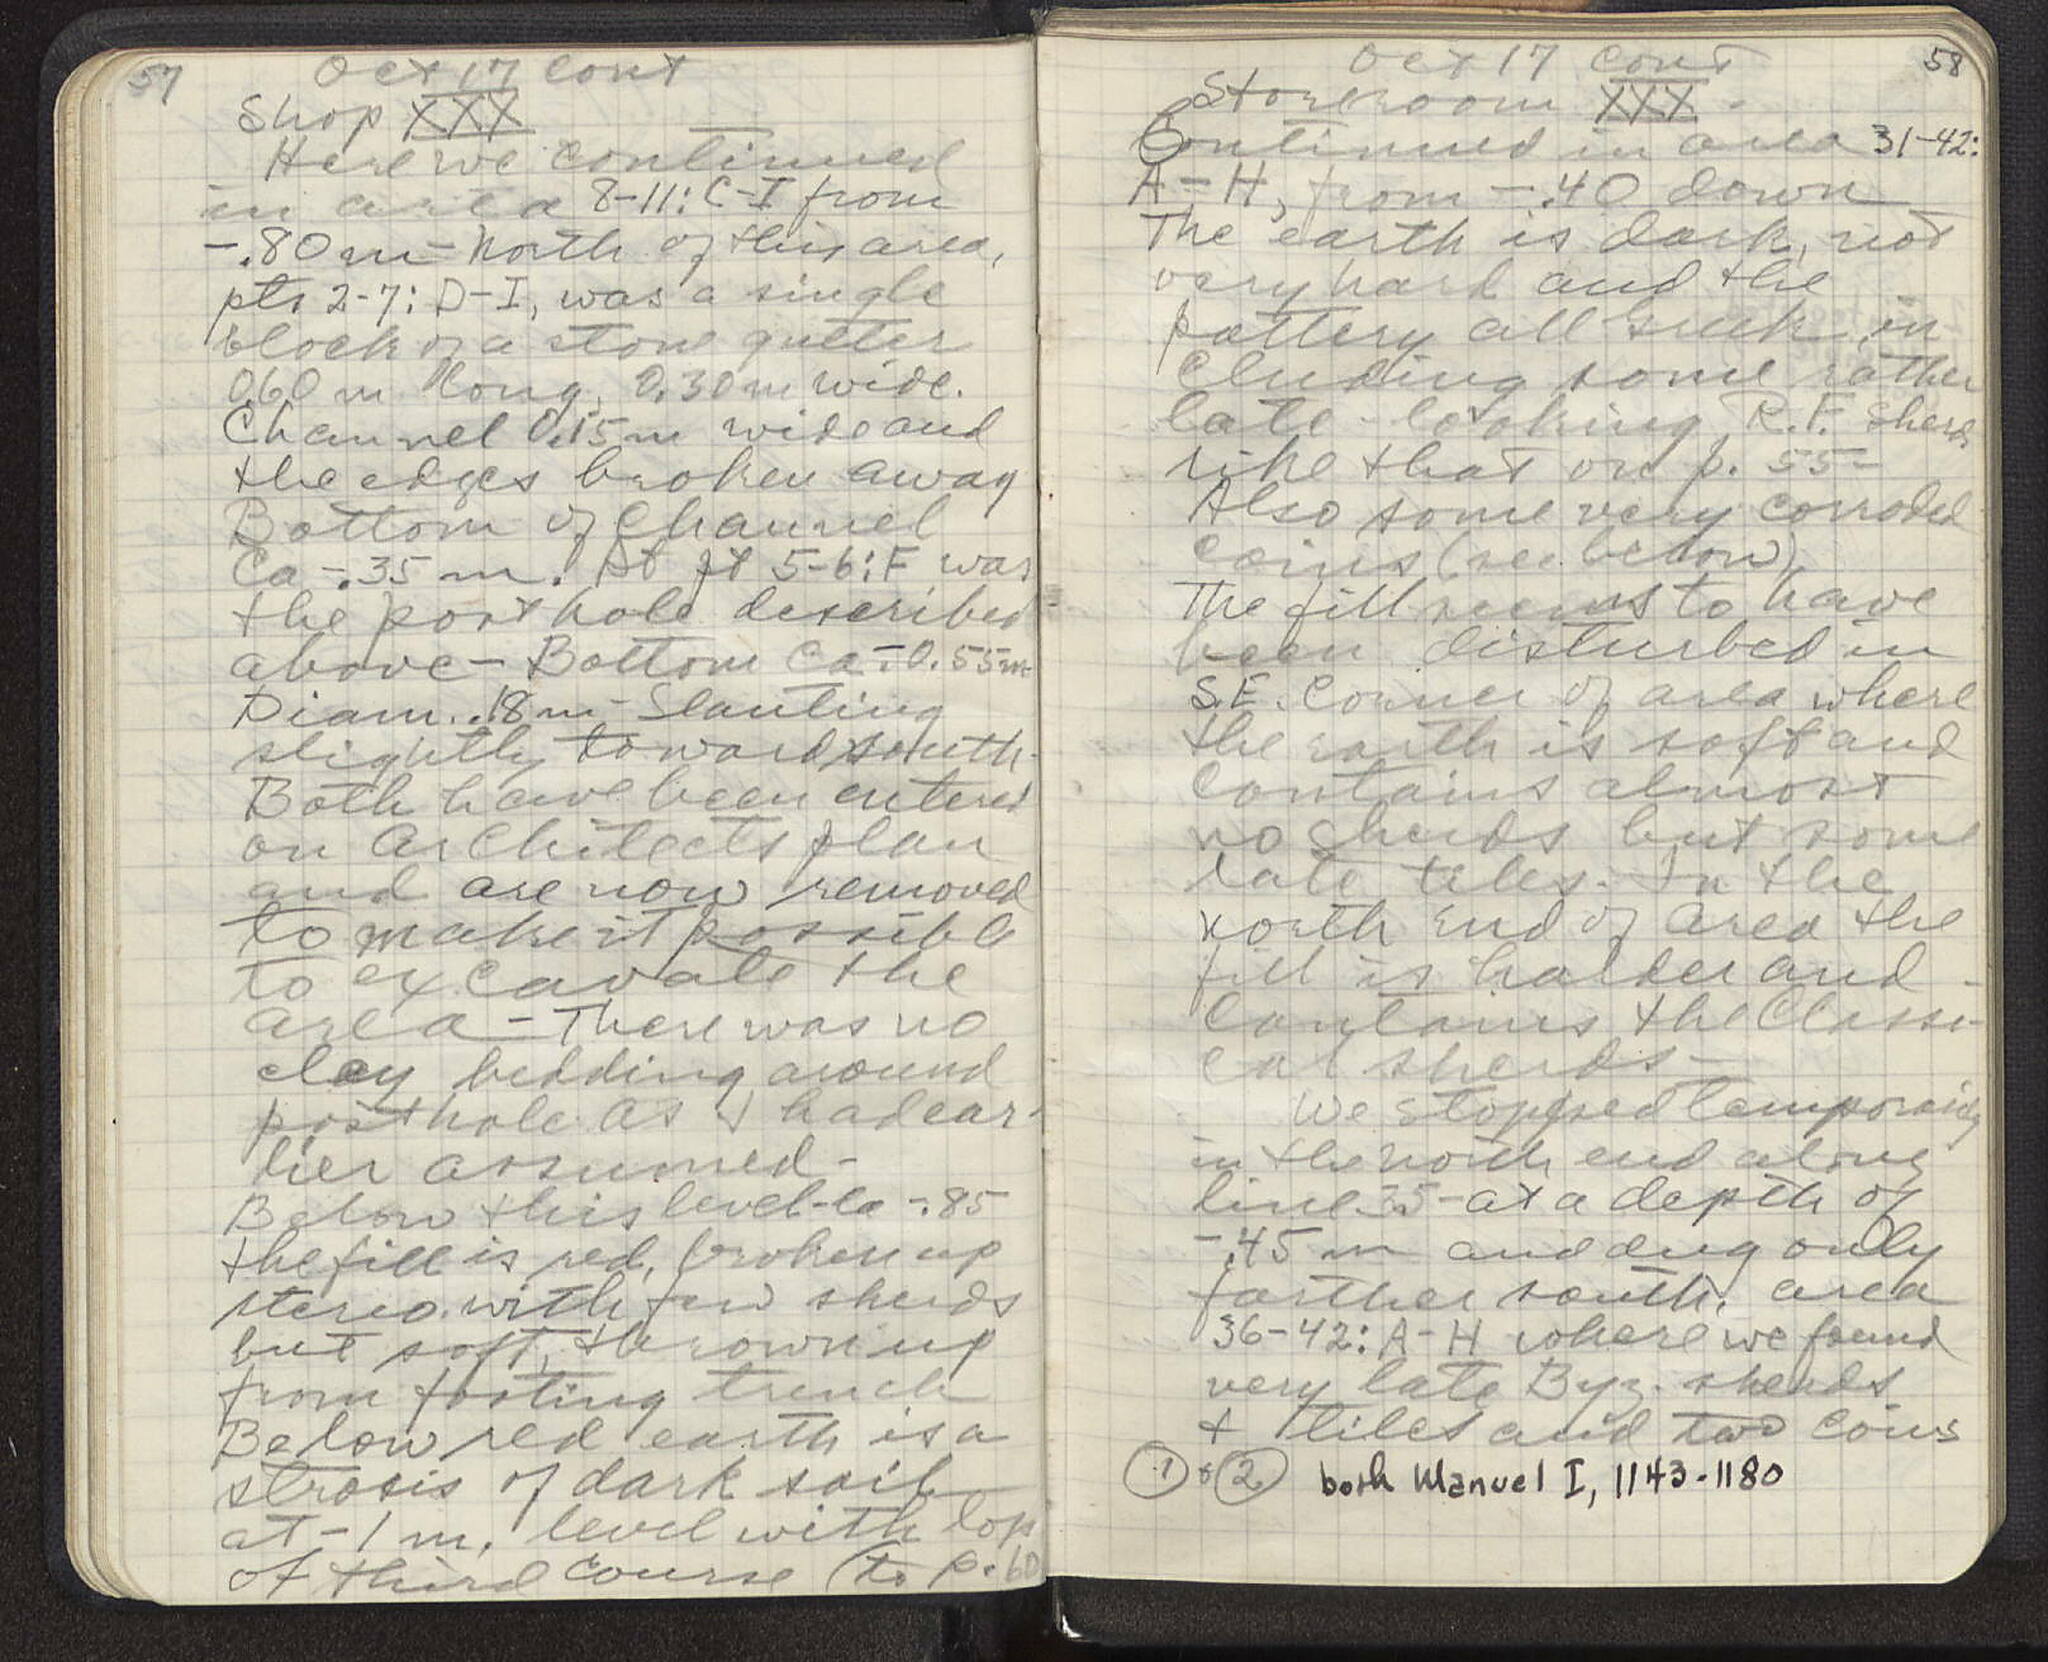 57
Oct 17 cont
Shop XXX
Here we continued
in area 8-11: C-I from
-.80 m - North of this area,
pts 2-7: D-I, was a single
block of a stone gutter
0.60 m long, 0.30 m wide.
Channel 0.15 m wide and
the edges broken away
Bottom of Channel
Ca -.35 m. At pt 5-6: F was
the posthole described
above - Bottom Ca -0.55 m
Diam. .18 m - Slanting
slightly toward south.
Both have been entered
on Architects plan
and are now removed
to make it possible
to excavate the
area - There was no
clay bedding around
posthole as I had ear-
lier assumed -
Below this level - ca -.85
the fill is red, broken up
stereo with few sherds
but soft, thrown up
from footing trench
Below red earth is a
strosis of dark soil
at -1 m, level with top
of third course (to p. 60
58
Oct 17 cont
Storeroom XXX.
Continued in area 31-42:
A-H, from -.40 down
The earth is dark, not
very hard and the
pottery all Greek, in
cluding some rather
late-looking R.F. sherds
like that on p. 55-
Also some very corroded
coins (see below)
The fill seems to have
been disturbed in
S.E. Corner of area where
the earth is soft and
contains almost
no sherds but some
late tiles. In the
north end of area the
fill is harder and
contains the Classi-
cal sherds -
We stopped temporarily
in the north end along
line 35 - at a depth of
-.45 m and dug only
farther south, area
36-42: A-H where we found
very late Byz. sherds
+ tiles and two coins
1 & 2 both Manuel I, 1143-1180